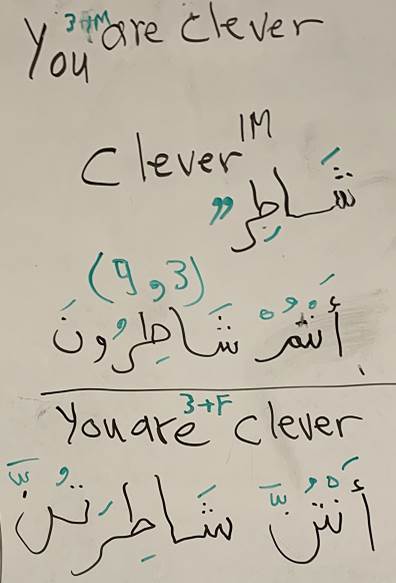 You 3+M are clever
Clever 1M
شَاطِرٌ
(9 و 3)
أَنْتُمْ شَاطِرُونَ
You are 3+F clever
أَنْتُنَّ شَاطِرَتُنَّ